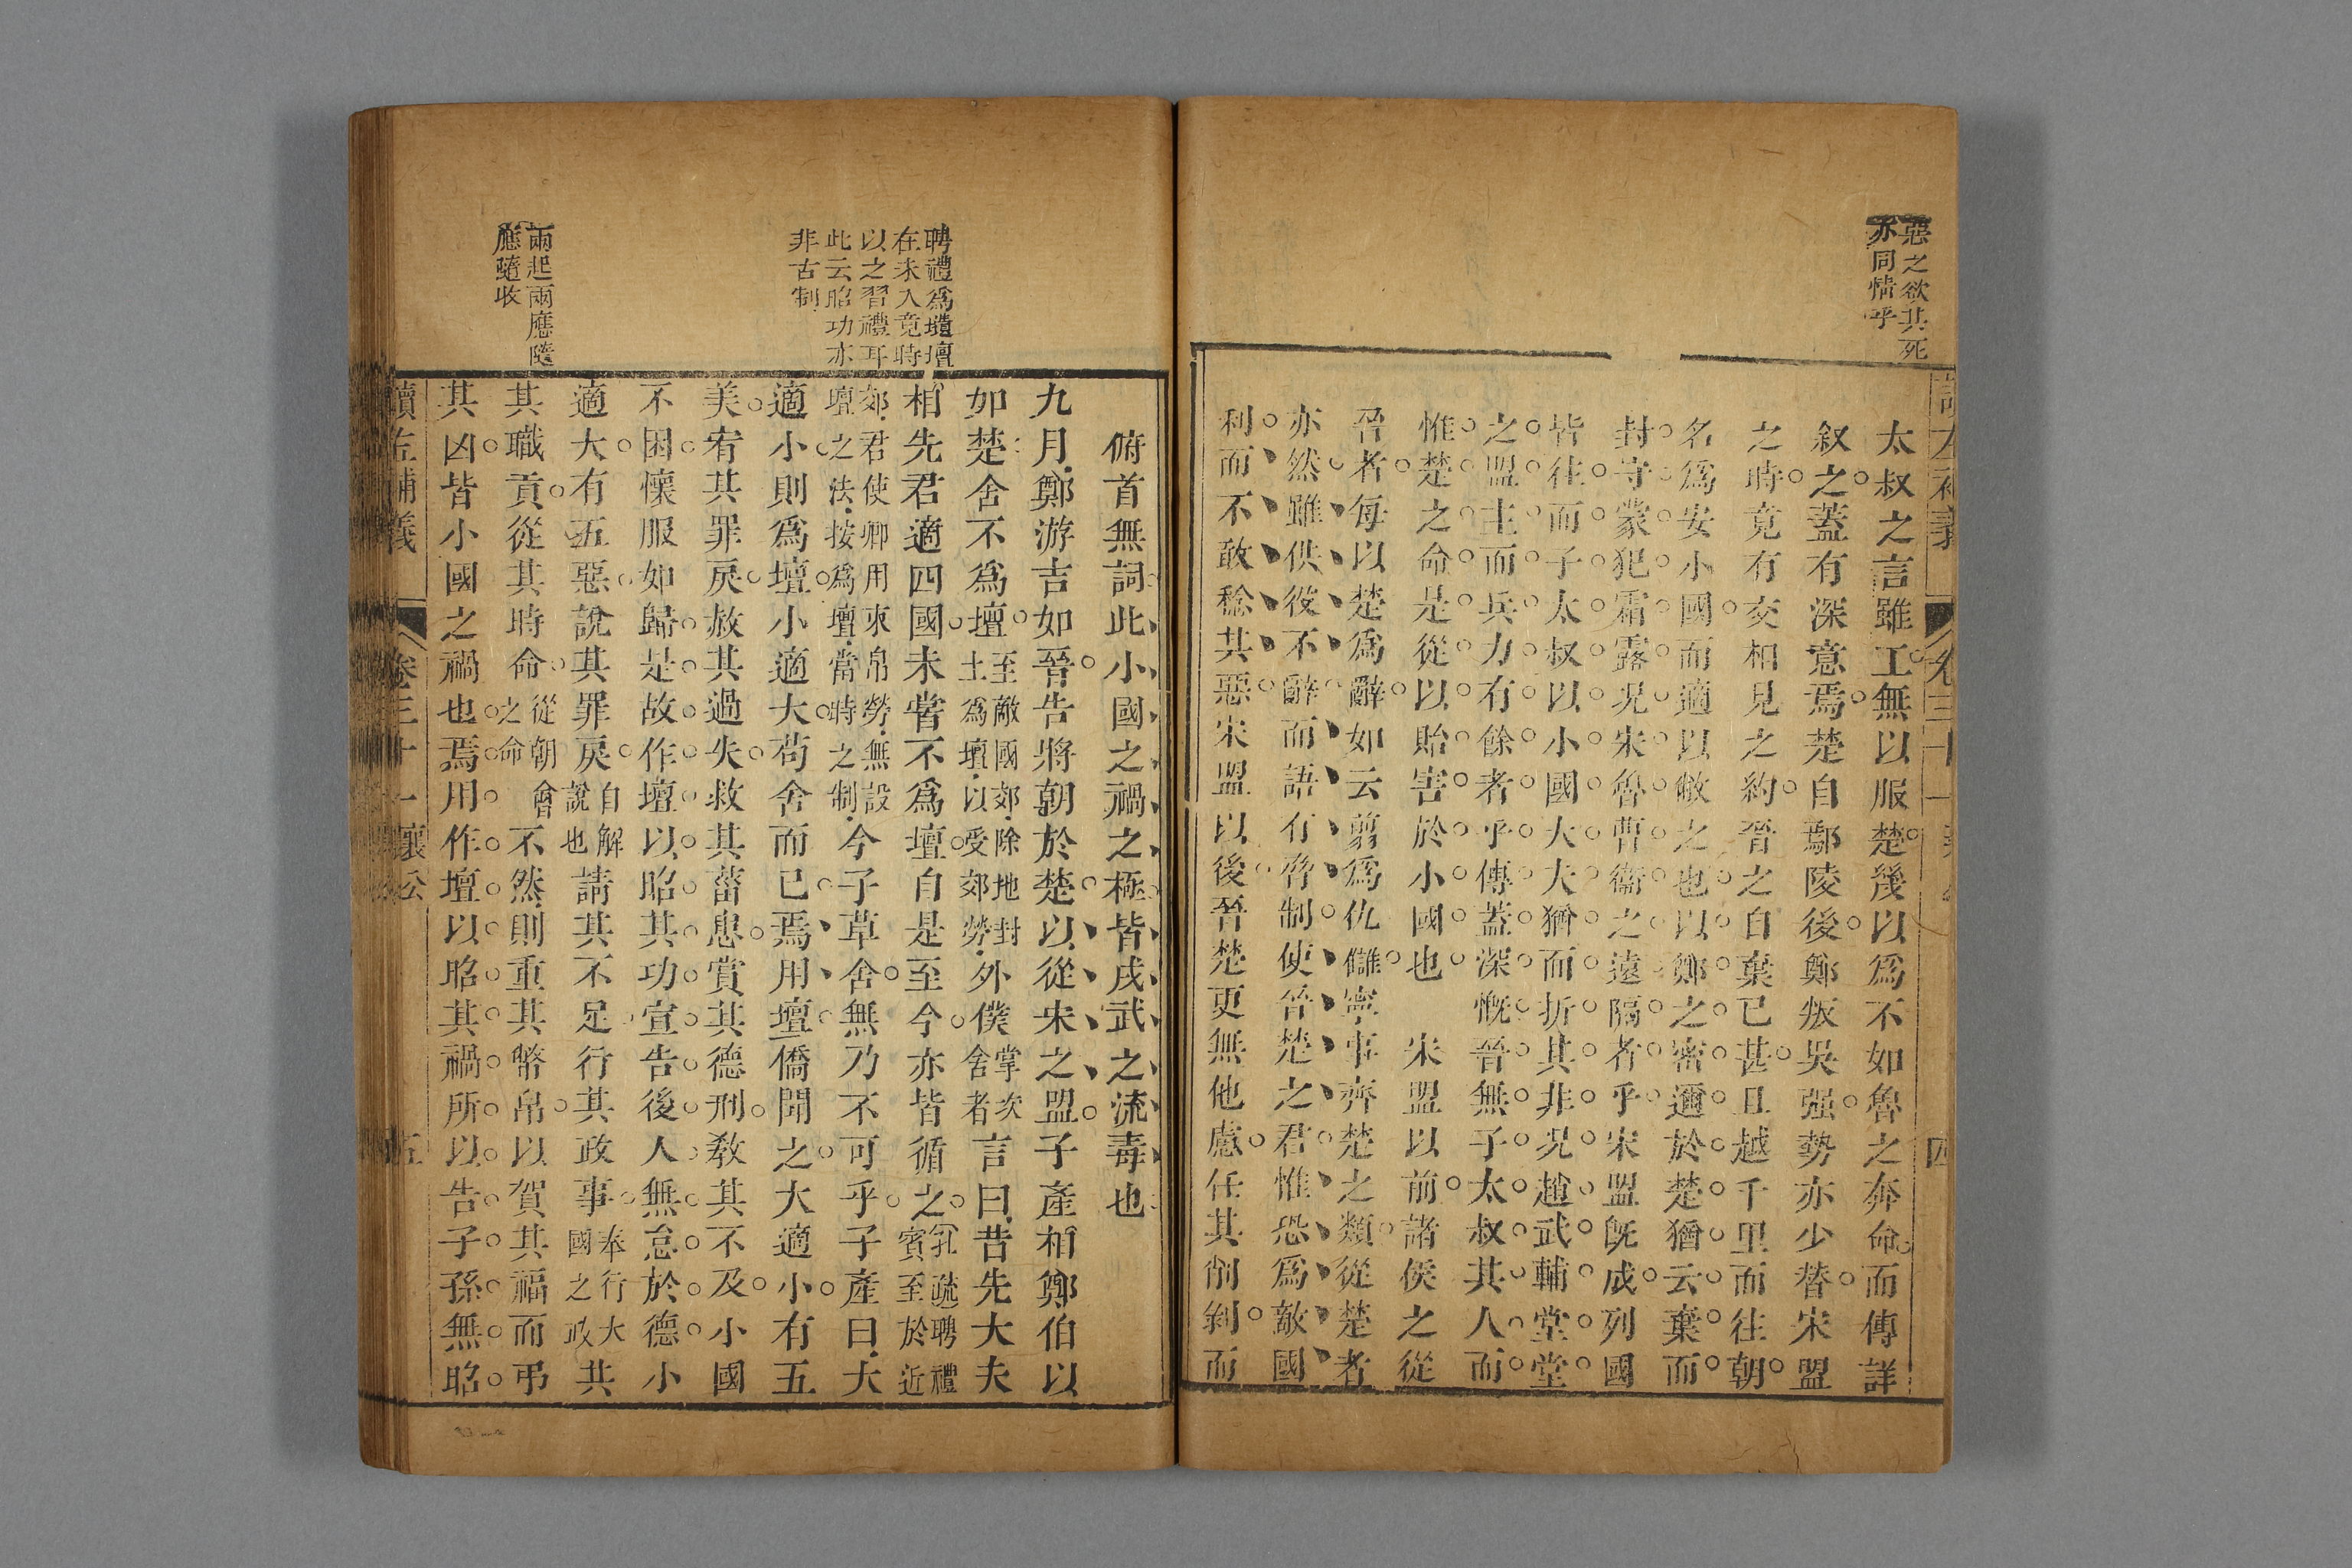 惡之欲其死
亦同情乎
太叔之言雖工無以服楚幾以爲不如魯之奔命而傳詳
叙之蓋有深意焉楚自鄢陵後鄭叛吳强勢亦少替宋盟
之時竟有交相見之約晉之自棄已甚且越千里而往朝
名爲安小國而適以敝之也以鄭之密邇於楚猶云棄而
封守蒙犯霜露况宋魯曹衞之遠隔者乎宋盟旣成列國
皆往而子太叔以小國大夫猶而折其非况趙武輔堂堂
之盟主而兵力有餘者乎傳蓋深慨晉無子太叔其人而
惟楚之命是從以貽害於小國也　宋盟以前諸侯之從
晉者每以楚爲辭如云翦爲仇讎寧事齊楚之類從楚者
亦然雖供役不辭而語有脅制使晉楚之君惟恐爲敵國
利而不敢稔其惡宋盟以後晉楚更無他慮任其削剝而
讀左補義　卷三十一襄公　四
聘禮爲壝壇
在未入竟時
以之習禮耳
此云昭功亦
非古制
兩起兩應隨
應隨收
俯首無詞此小國之禍之極皆戌武之流毒也
九月鄭游吉如晉告將朝於楚以從宋之盟子產相鄭伯以
如楚舍不爲壇至敵國郊除地封土爲壇以受郊勞外僕掌次舍者言曰昔先大夫
相先君適四國未嘗不爲壇自是至今亦皆循之孔疏聘禮賓至於近
郊君使卿用束帛勞無設壇之法按爲壇當時之制今子草舍無乃不可乎子產曰大
適小則爲壇小適大苟舍而已焉用壇僑聞之大適小有五
美宥其罪戾赦其過失救其菑患賞其德刑敎其不及小國
不困懷服如歸是故作壇以昭其功宣告後人無怠於德小
適大有五惡說其罪戾自解說也請其不足行其政事奉行大國之政共
其職貢從其時命從朝會之命不然則重其幣帛以賀其福而弔
其凶皆小國之禍也焉用作壇以昭其禍所以告子孫無昭
讀左補義　卷三十一襄公　五